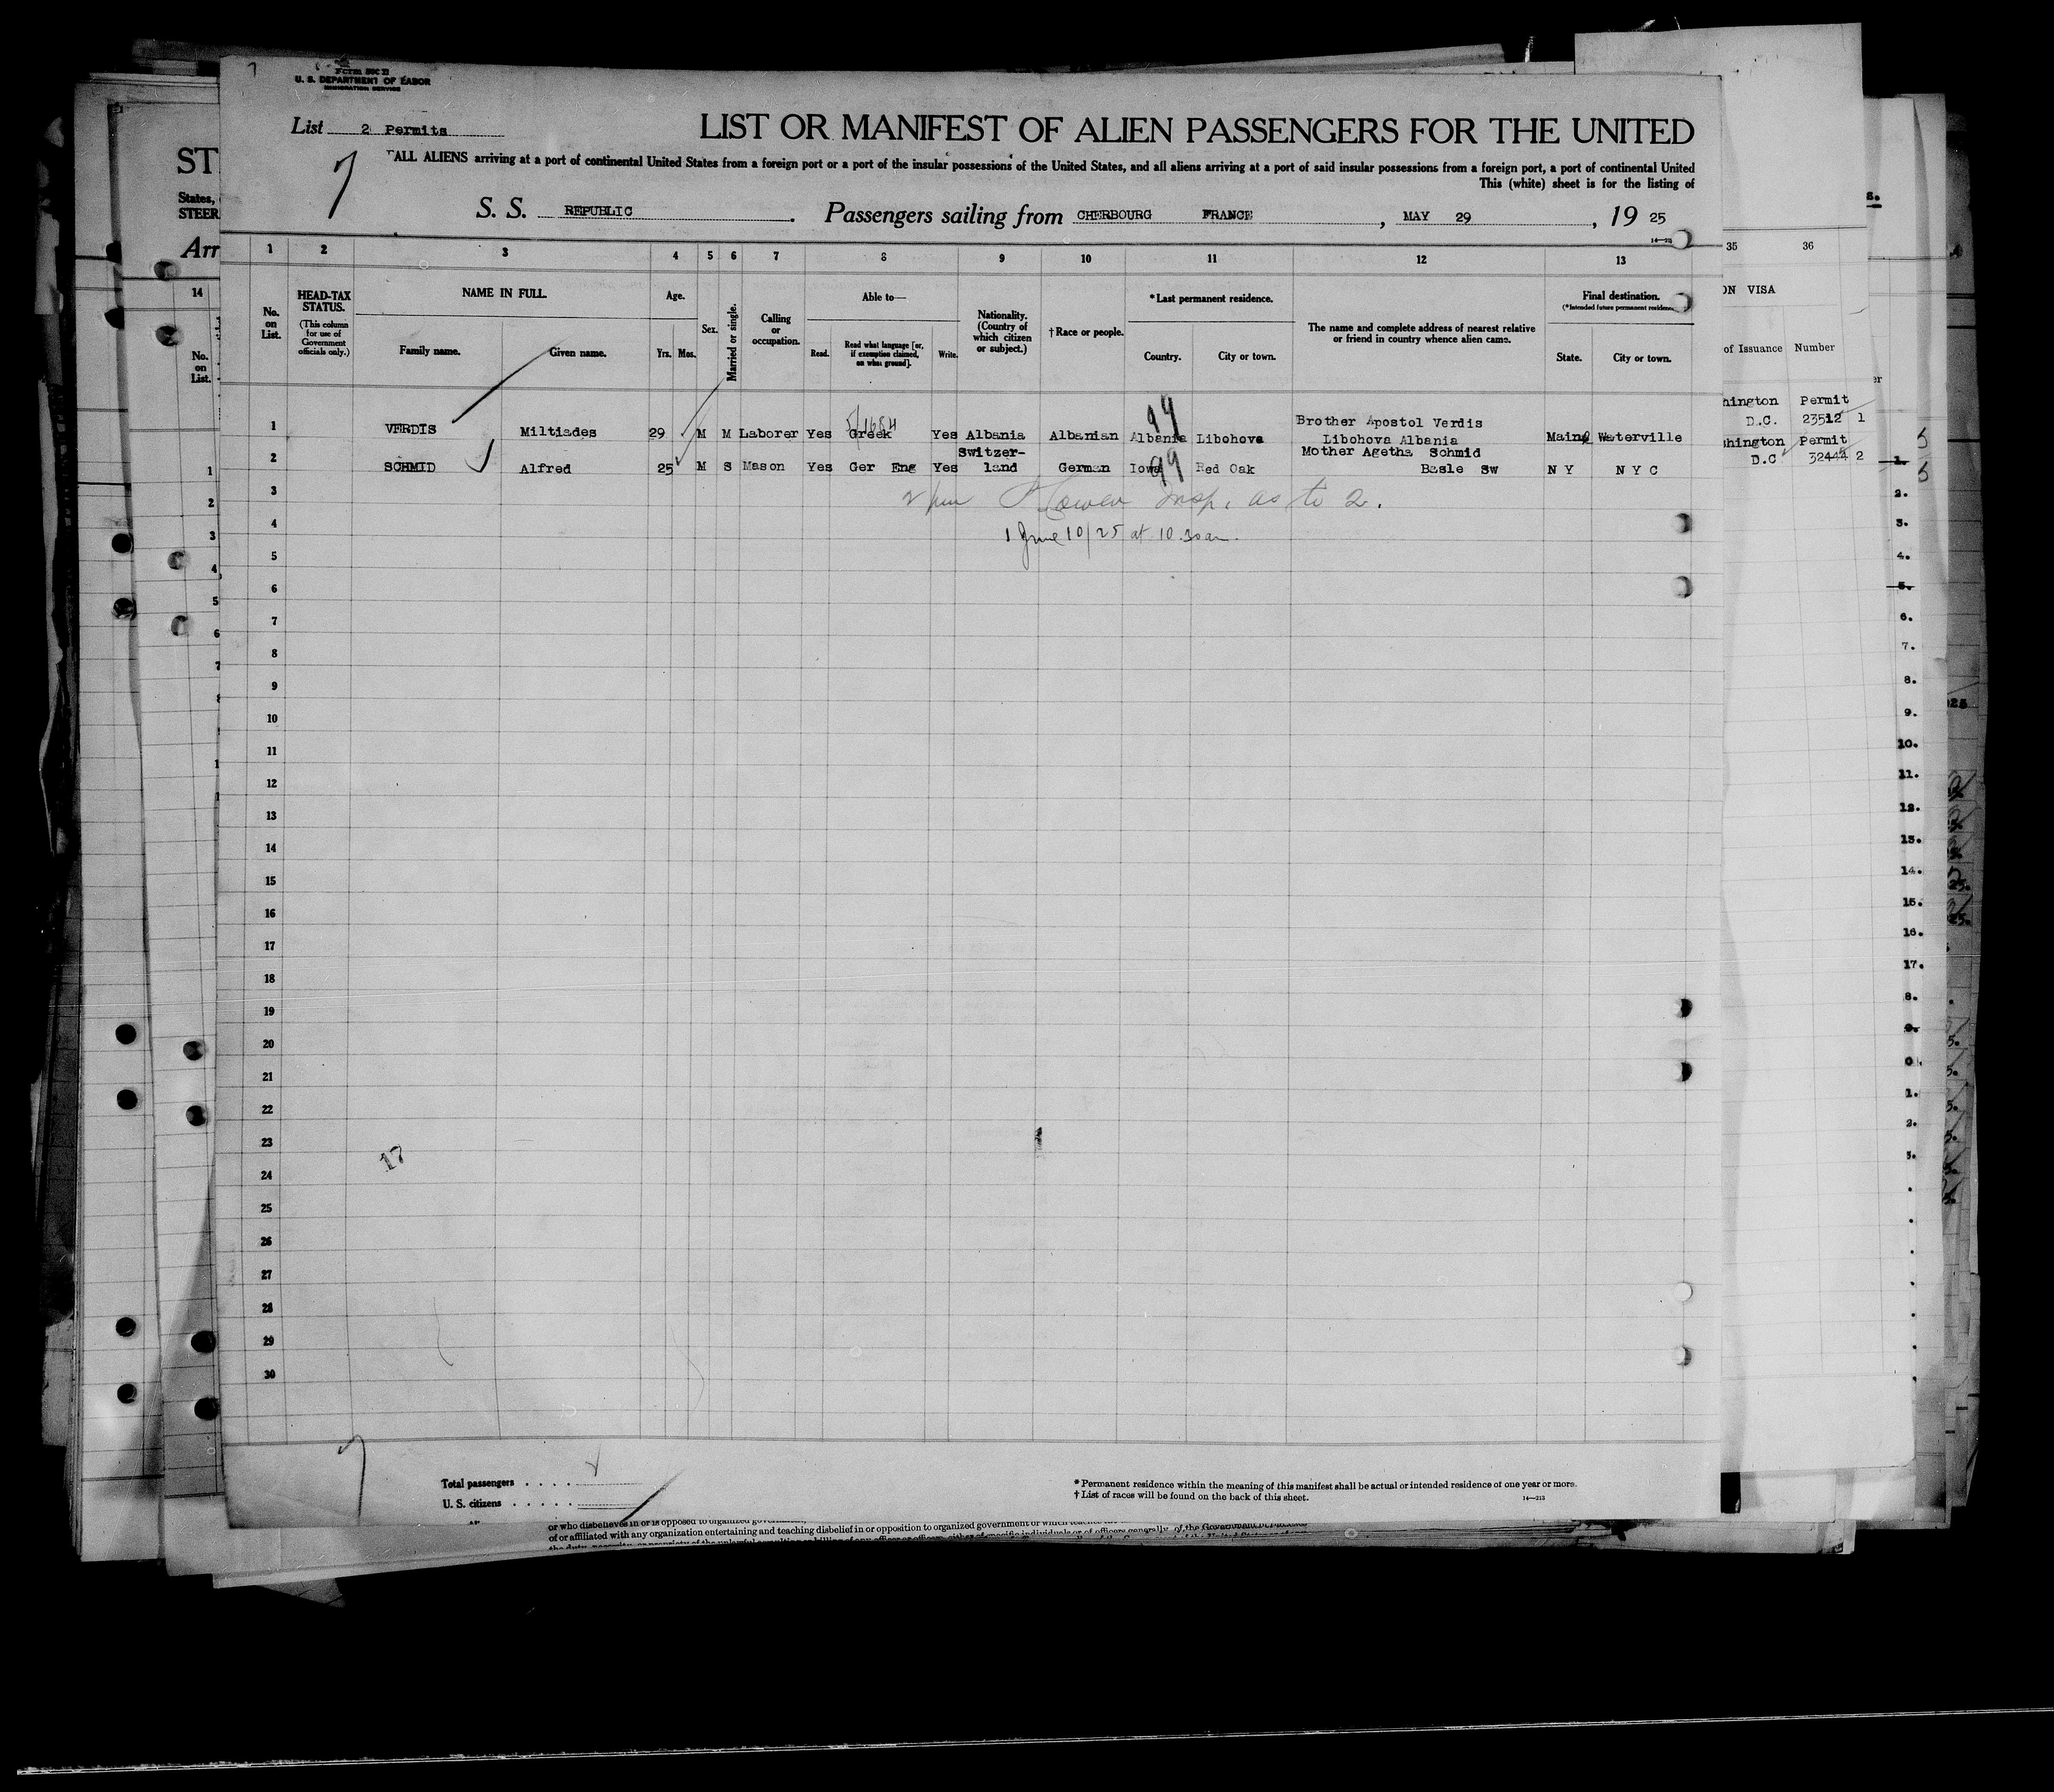 Form 500 B
U. S. DEPARTMENT OF LABOR
IMMIGRATION SERVICE
List 2 Permits
LIST OR MANIFEST OF ALIEN PASSENGERS FOR THE UNITED
ALL ALIENS arriving at a port of continental United States from a foreign port or a port of the insular possessions of the United States, and all aliens arriving at a port of said insular possessions from a foreign port, a port of continental United
This (white) sheet is for the listing of
S. S. REPUBLIC. Passengers sailing from CHERBOURG FRANCE, MAY 29, 19 25
1 2 3 4 5 6 7 8 9 10 11 12 13
No. on List.
HEAD-TAX STATUS.
(This column for use of Government officials only.)
NAME IN FULL.
Family name. Given name.
Age.
Yrs. Mos.
Sex.
Married or single.
Calling or occupation.
Able to—
Read. Read what language [or, if exemption claimed, on what ground]. Write.
Nationality. (Country of which citizen or subject.)
†Race or people.
*Last permanent residence.
Country. City or town.
The name and complete address of nearest relative or friend in country whence alien came.
Final destination.
(*Intended future permanent residence)
State. City or town.
1 VERDIS Miltiades 29 M M Laborer Yes Greek Yes Albania Albanian Albania Libohova Brother Apostol Verdis Libohova Albania Maine Waterville
2 SCHMID Alfred 25 M S Mason Yes Ger Eng Yes Switzer-land German Iowa Red Oak Mother Agetha Schmid Basle Sw N Y N Y C
99
99
Insp. as to 2.
1 June 10/25 at 10.30 am.
3
4
5
6
7
8
9
10
11
12
13
14
15
16
17
18
19
20
21
22
23
24
25
26
27
28
29
30
17
Total passengers
U. S. citizens
* Permanent residence within the meaning of this manifest shall be actual or intended residence of one year or more.
† List of races will be found on the back of this sheet.
14—213
or who disbelieves in or is opposed to organized
of or affiliated with any organization entertaining and teaching disbelief in or opposition to organized government or which
ST
States,
STEER
Arr
14
No. on List.
1
2
3
4
5
6
35 36
ON VISA
of Issuance Number
hington Permit
D.C. 23512 1
shington Permit
D.C 32444 2